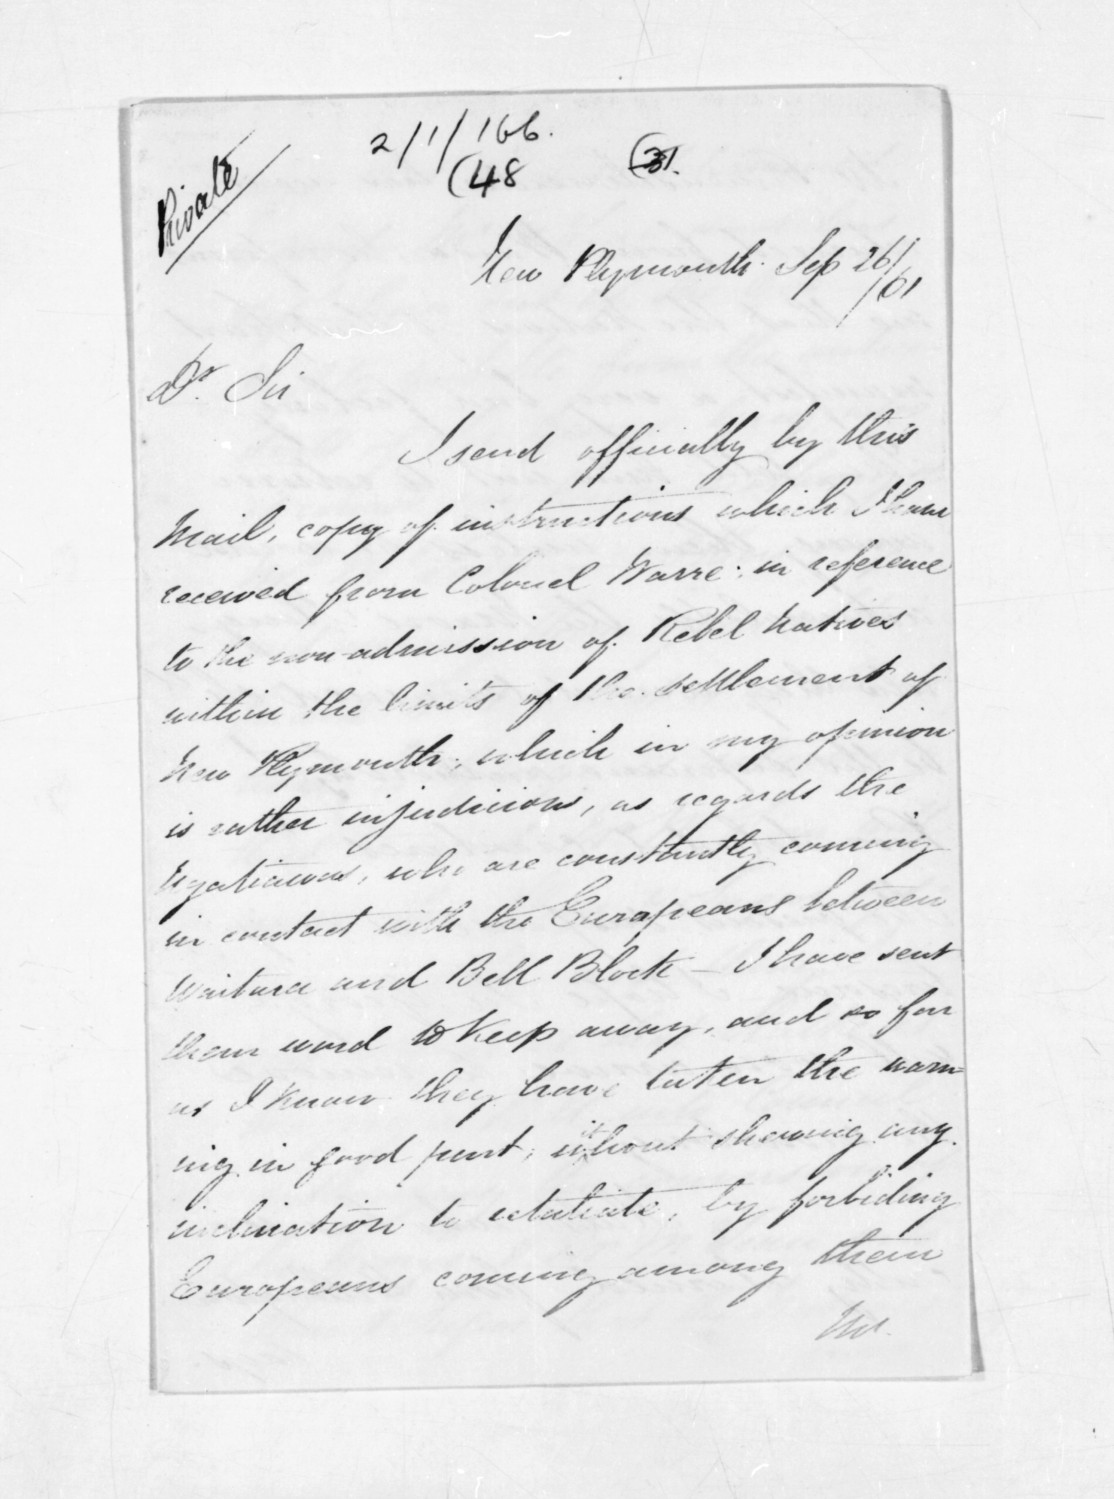 2/1/166.
(48
(31.
Private
New Plymouth. Sep 26/
/61
Dr. Sir
I send officially by this
Mail, copy of instructions which I have
received from Colonel Warre; in reference
to the non-admission of Rebel Natives
within the limits of the settlement of
New Plymouth; which in my opinion
is rather injudicious, as regards the
Ngatiawas, who are constantly coming
in contact with the Europeans between
Waitara and Bell Block – I have sent
them word to keep away, and so far
as I know they have taken the warn
ing in good part, without shewing any
inclination to retaliate, by forbiding
Europeans coming among them